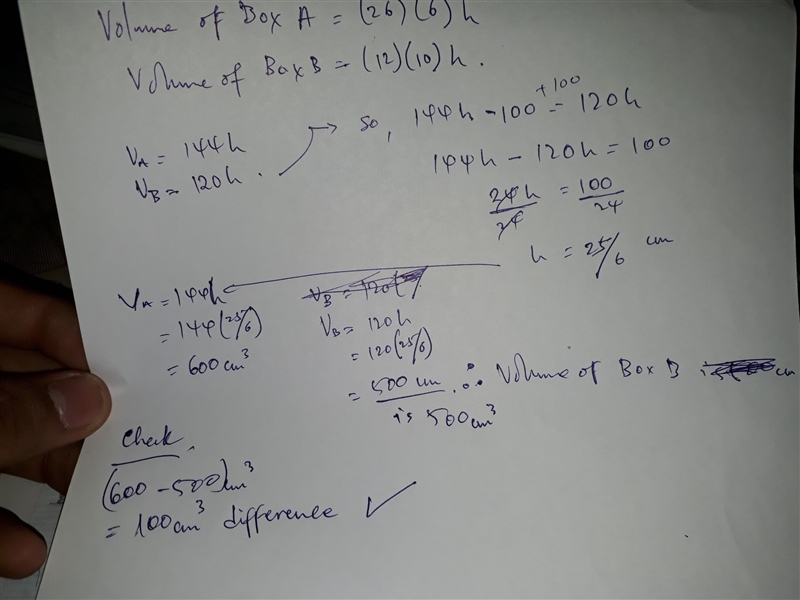 Volume of Box A = (26)(6)h
Volume of Box B = (12)(10)h.
V_A = 144h
V_B = 120h.
→ So, 144h - 100 +100 = 120h
144h - 120h = 100
24h/24 = 100/24
h = 25/6 cm
V_A = 144h
= 144(25/6)
= 600 cm³
V_B = 120(
V_B = 120h
= 120(25/6)
= 500 cm
is 500cm³
∴ Volume of Box B cm
Check,
(600 - 500)cm³
= 100cm³ difference ✓